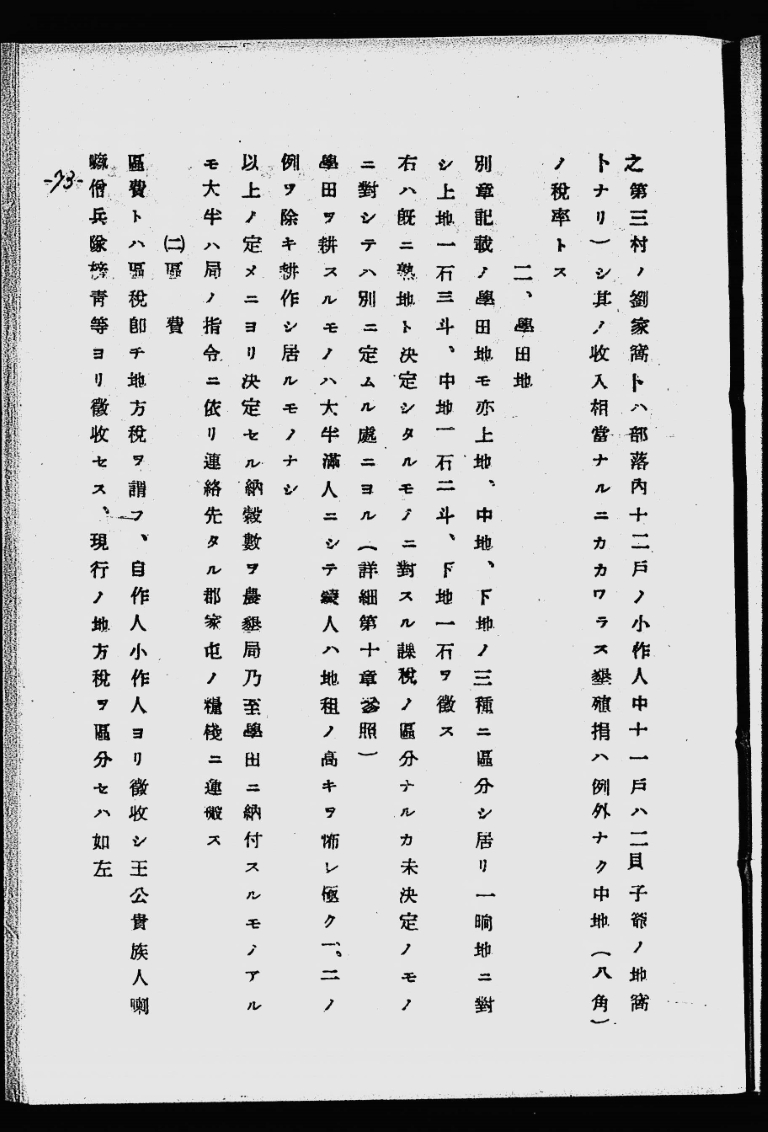 之第三村ノ劉家窩トハ部落內十二戶ノ小作人中十一戶ハ二貝子爺ノ地窩
トナリ)シ其ノ收入相當ナルニカカワラス墾殖捐ハ例外ナク中地(八角)
ノ稅率トス
二、學田地
別章記載ノ學田地モ亦上地、中地、下地ノ三種ニ區分シ居リ一晌地ニ對
シ上地一石三斗、中地一石二斗、下地一石ヲ徵ス
右ハ旣ニ熟地ト決定シタルモノニ對スル課稅ノ區分ナルカ未決定ノモノ
ニ對シテハ別ニ定ムル處ニヨル(詳細第十章參照)
學田ヲ耕スルモノハ大半滿人ニシテ蒙人ハ地租ノ高キヲ怖レ極ク一、二ノ
例ヲ除キ耕作シ居ルモノナシ
以上ノ定メニヨリ決定セル納穀數ヲ農墾局乃至學田ニ納付スルモノアル
モ大半ハ局ノ指令ニ依リ連絡先タル郡家屯ノ糧棧ニ運搬ス
(二)區費
區費トハ區稅卽チ地方稅ヲ謂フ、自作人小作人ヨリ徵收シ王公貴族人喇
嘛僧兵隊 靑等ヨリ徵收セス、現行ノ地方稅ヲ區分セハ如左
-73-